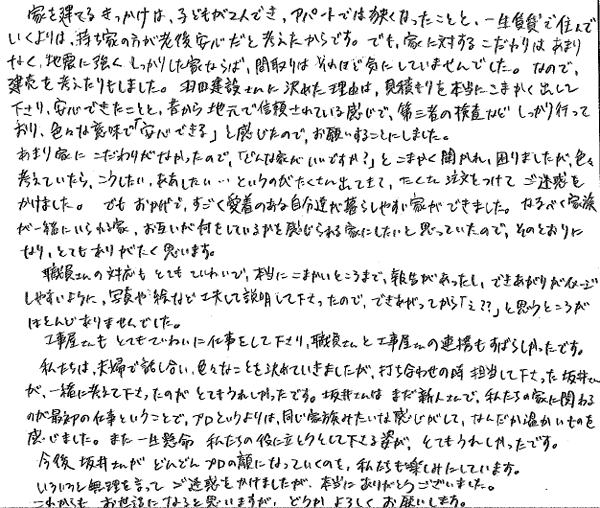 家を建てるきっかけは、子どもが2人でき、アパートでは狭くなったことと、一生賃貸で住んで
いくよりは、持ち家の方が老後安心だと考えたからです。でも、家に対するこだわりはあまり
なく、地震に強くしっかりした家ならば、間取りはそれほど気にしていませんでした。なので、
建売も考えたりもしました。羽田建設さんに決めた理由は、見積もりを本当にこまかく出して
下さり、安心できたことと、昔から地元で信頼されている感じで、第三者の検査などしっかり行って
おり、色々な意味で「安心できる」と感じたので、お願いすることにしました。
あまり家にこだわりがなかったので、「どんな家がいいですか?」とこまやく聞かれ、困りましたが、色々
考えていたら、こうしたい、ああしたい…というのがたくさん出てきて、たくさん注文をつけてご迷惑を
かけました。でもおかげで、すごく愛着のある自分達が暮らしやすい家ができました。なるべく家族
が一緒にいられる家、お互いが何をしているかを感じられる家にしたいと思っていたので、そのとおりに
なり、とてもありがたく思います。
職員さんの対応もとてもていねいで、本当にこまかいところまで、報告があったし、できあがりがイメージ
しやすいように、写真や絵など工夫して説明して下さったので、できあがってから「え??」と思うところが
ほとんどありませんでした。
工事屋さんもとてもていねいに仕事をして下さり、職員さんと工事屋さんの連携もすばらしかったです。
私たちは、夫婦で話し合い、色々なことを決めていきましたが、打ち合わせの時担当して下さった坂井さん
が、一緒に考えて下さったのがとてもうれしかったです。坂井さんはまだ新人さんで、私たちの家に関わる
のが最初の仕事ということで、プロというよりは、同じ家族みたいな感じがして、なんだか温かいものを
感じました。また一生懸命 私たちの役に立とうとして下さる姿が、とてもうれしかったです。
今後 坂井さんがどんどんプロの顔になっていくのを、私たちも楽しみにしています。
いろいろと無理を言ってご迷惑をかけましたが、本当にありがとうございました。
これからもお世話になると思いますが、どうかよろしくお願いします。